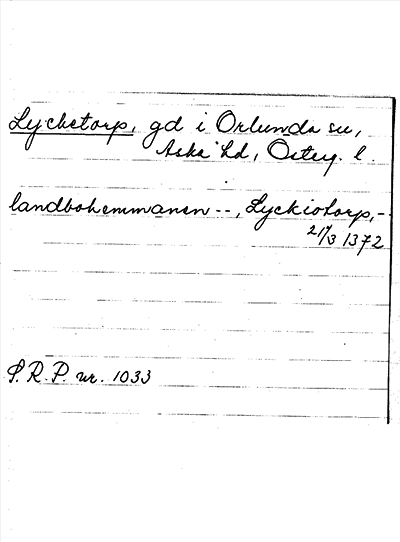 Lycketorp, gd i Orlunda sn,
Aska hd, Österg. l.
landbohemmanen --, Lyckiotorp, -
21/3 1372
S.R.P. nr. 1033